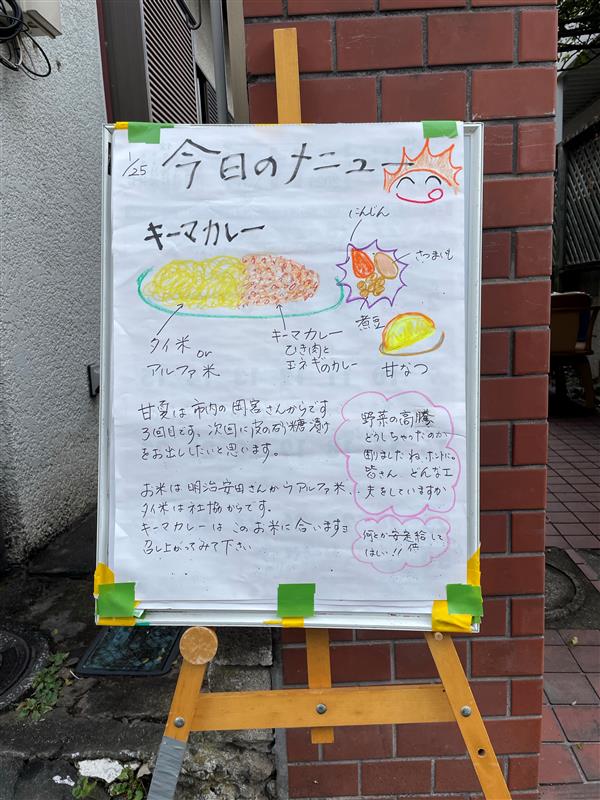 1/25
今日のメニュー
キーマカレー
にんじん
さつまいも
煮豆
甘なつ
タイ米
or
アルファ米
キーマカレー
ひき肉と
玉ネギのカレー
甘夏は市内の岡宮さんからです
3回目です、次回に皮の砂糖漬け
をお出ししたいと思います。
お米は明治安田さんからアルファ米、
タイ米は社協からです。
キーマカレーはこのお米に合いますヨ
召し上がってみて下さい
野菜の高騰
どうしちゃったのか
困りましたね ホントに。
皆さん どんな工
夫をしていますか
何とか安定供給して
ほしい!!